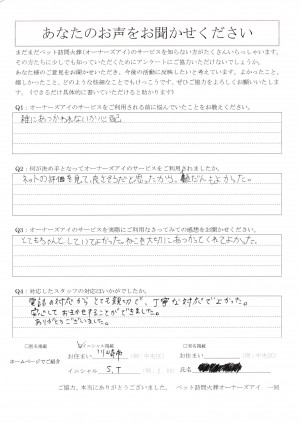 あなたのお声をお聞かせください
まだまだペット訪問火葬(オーナーズアイ)のサービスを知らない方がたくさんいらっしゃいます。
その方たちに少しでも知っていただくためにアンケートにご協力いただけないでしょうか。
あなた様のご意見をお聞かせいただき、今後の活動に反映したいと考えています。よかったこと、
嬉しかったこと、どのような些細なことでもけっこうです。ぜひご協力をよろしくお願いいたします。
(できるだけ具体的に書いていただけると助かります)
Q1:オーナーズアイのサービスをご利用される前に悩んでいたことをお教えください。
雑にあつかわれないか心配
Q2:何が決め手となってオーナーズアイのサービスをご利用されましたか。
ネットの評価を見て、良さそうだと思ったから。値だんもよかった。
Q3:オーナーズアイのサービスを実際にご利用なさってみての感想をお聞かせください。
とてもちゃんとしていてよかった。ねこを大切にあつかってくれてよかった。
Q4:対応したスタッフの対応はいかがでしたか。
電話の対応からとても親切で、丁寧な対応でよかった。
安心しておまかせすることができました。
ありがとうございました。
ホームページでご紹介
イニシャル掲載
お住まい 川崎市
イニシャル S.T
お住まい
氏名
ご協力、本当にありがとうございました。 ペット訪問火葬オーナーズアイ 一同